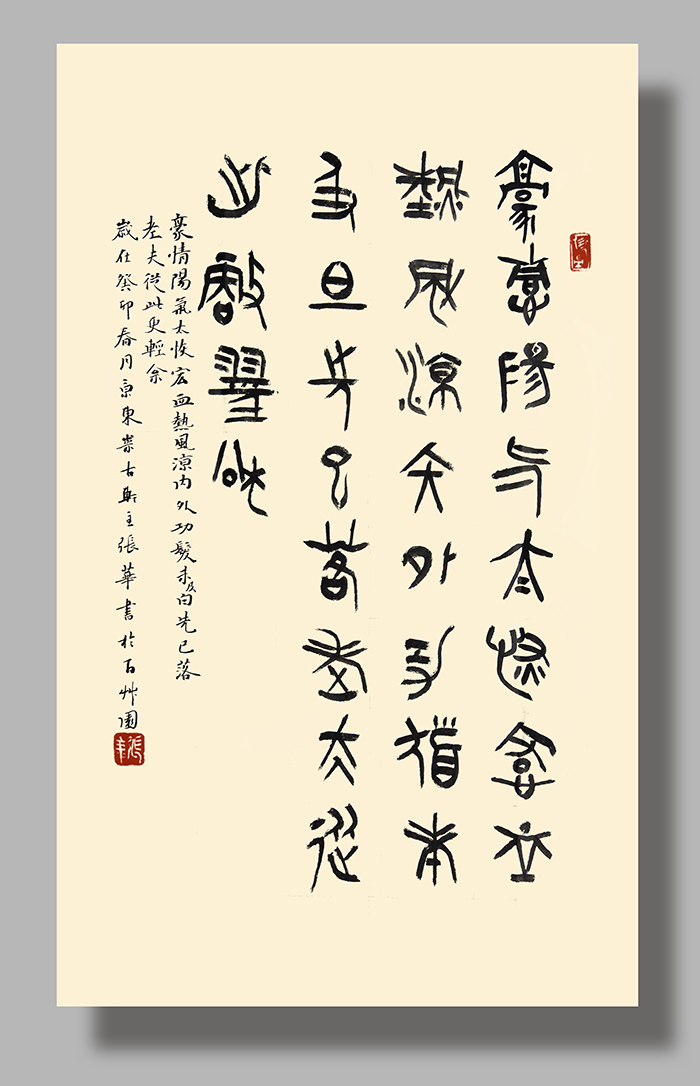 豪情陽氣太恢宏血
熱風涼内外功髮未
及白先已落老夫從
此更輕
豪情陽氣太恢宏血熱風涼内外功髮未及白先已落
老夫從此更輕
歲在癸卯春月京東崇古軒主張華書於百艸園
張華